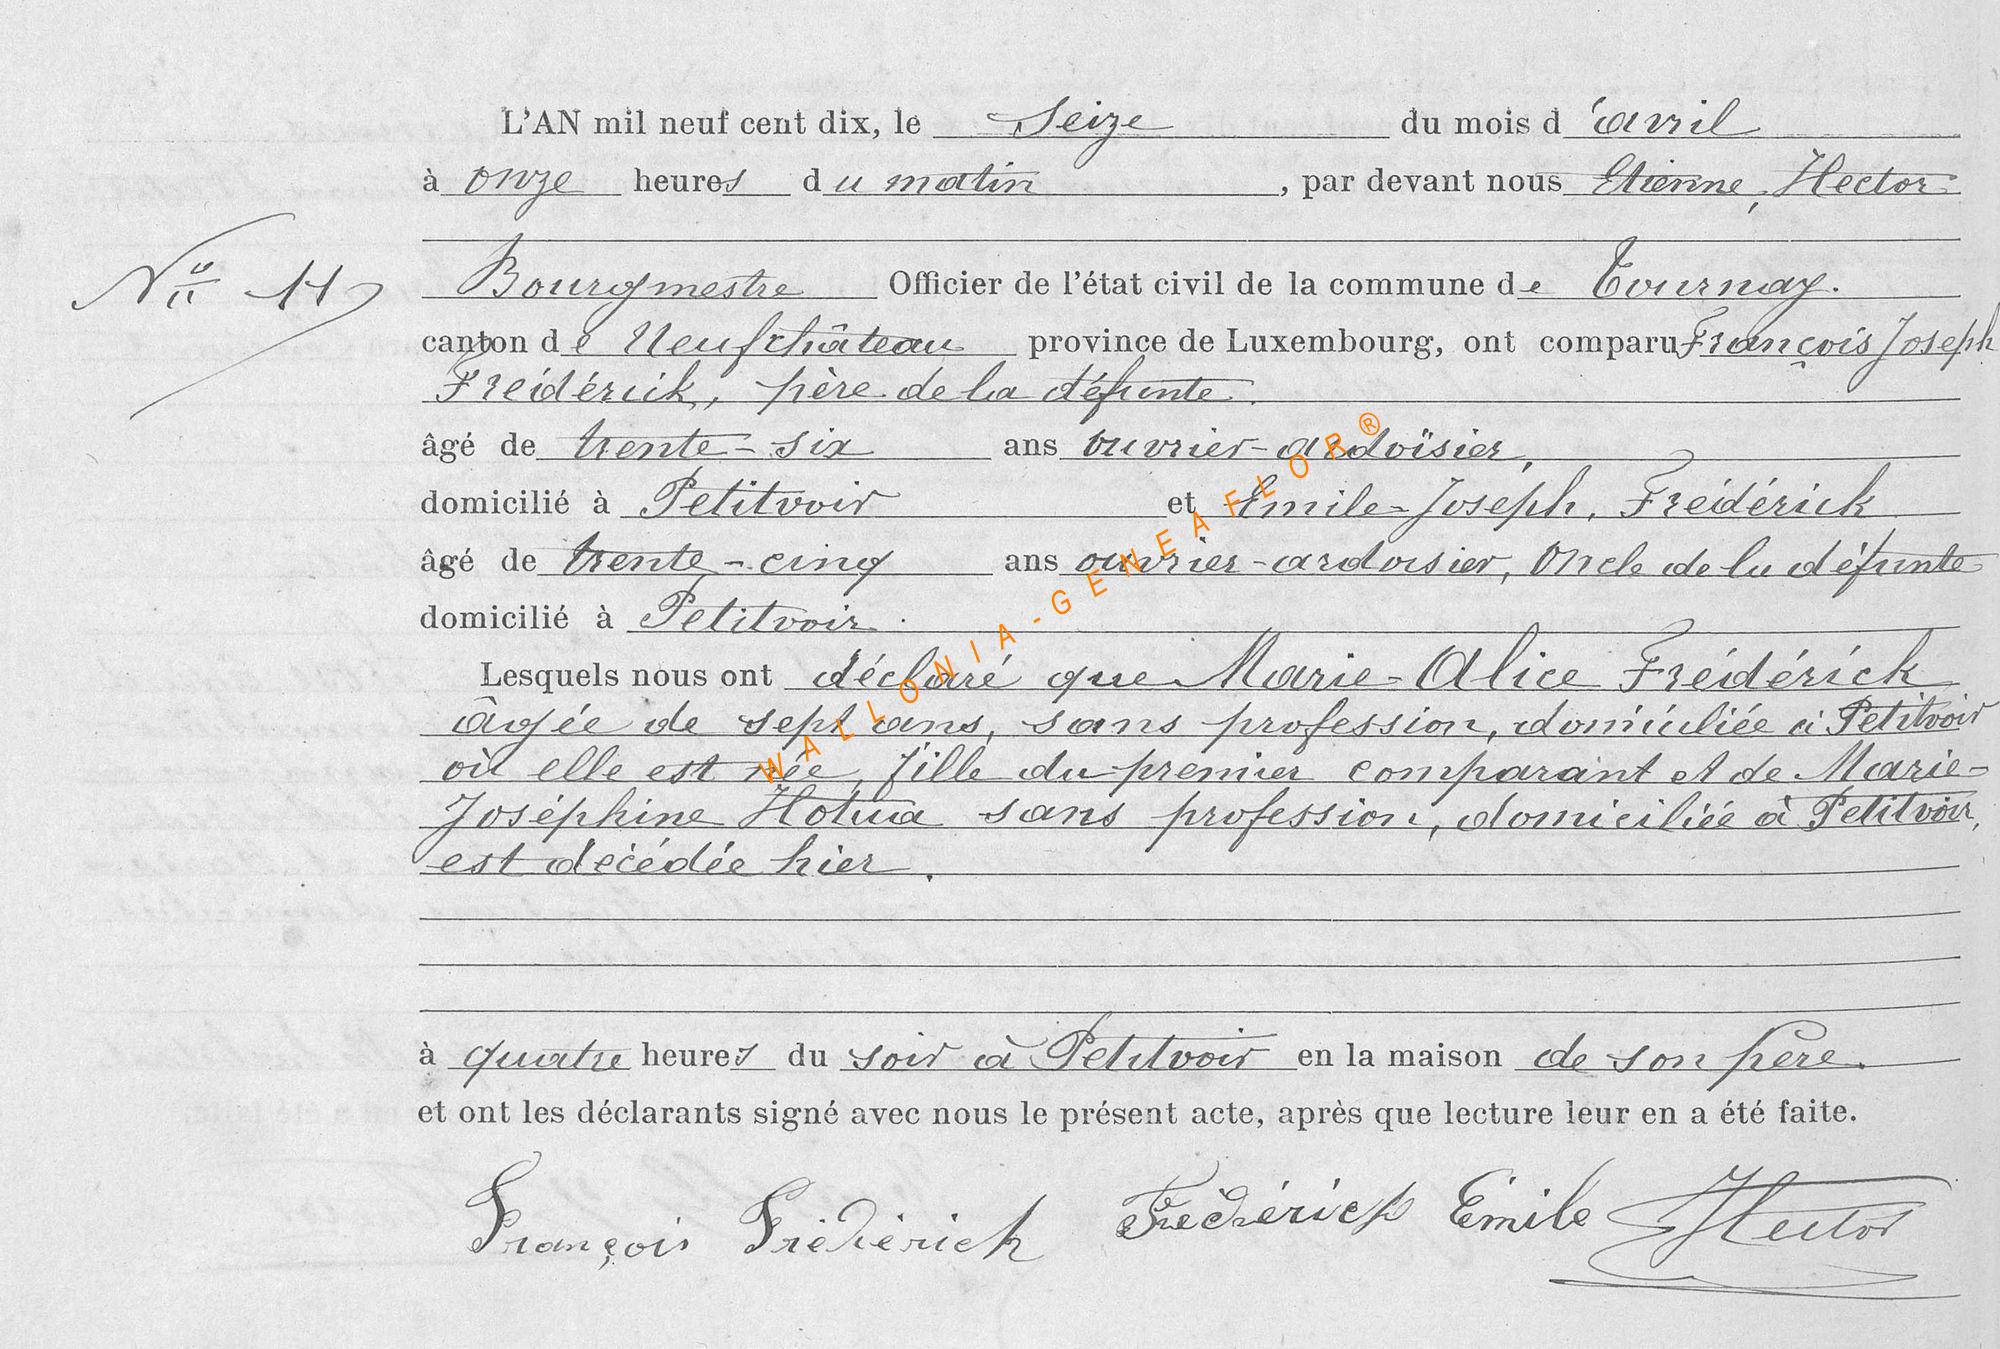 L'AN mil neuf cent dix, le seize du mois d'avril
à onze heures du matin, par devant nous Etienne, Hector
Nº 11
Bourgmestre Officier de l'état civil de la commune de Tournay.
canton de Neufchâteau province de Luxembourg, ont comparu François Joseph
Frédérick, père de la défunte.
âgé de trente-six ans ouvrier-ardoisier,
domicilié à Petitvoir et Emile-Joseph, Frédérick
âgé de trente-cinq ans ouvrier-ardoisier, Oncle de la défunte
domicilié à Petitvoir.
Lesquels nous ont déclaré que Marie-Alice Frédérick
âgée de sept ans, sans profession, domiciliée à Petitvoir
où elle est née, fille du premier comparant et de Marie-
Joséphine Hotua sans profession, domiciliée à Petitvoir,
est décédée hier.
à quatre heures du soir à Petitvoir en la maison de son père.
et ont les déclarants signé avec nous le présent acte, après que lecture leur en a été faite.
François Frédérick Frédérick Emile Hector
WALLONIA-GENEAFLOR®